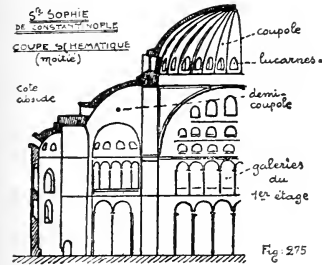 Ste SOPHIE
DE CONSTANTINOPLE
COUPE SCHEMATIQUE
(moitié)
coupole
lucarnes.
côté
abside
demi-
coupole
galeries
du
1er étage
Fig: 275